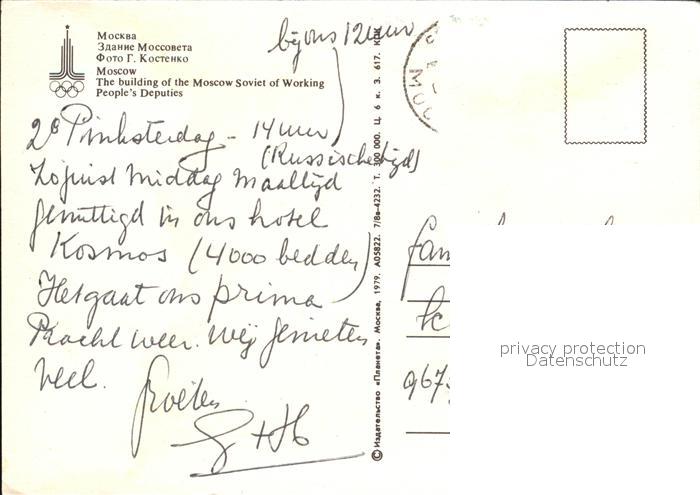 Москва
Здание Моссовета
Фото Г. Костенко
Moscow
The building of the Moscow Soviet of Working
People's Deputies
bij ons 12 uur
2e Pinksterdag - 14 uur
(Russische tijd)
Zojuist middag maaltijd
genuttigd in ons hotel
Kosmos (4000 bedden)
Het gaat ons prima
Pracht weer. Wij genieten
veel.
Groeten
© Издательство «Планета». Москва, 1979. А05822. 7/8е-4232. Т. 300 000. Ц. 6 к. З. 617.
МОС
fam
967
privacy protection
Datenschutz